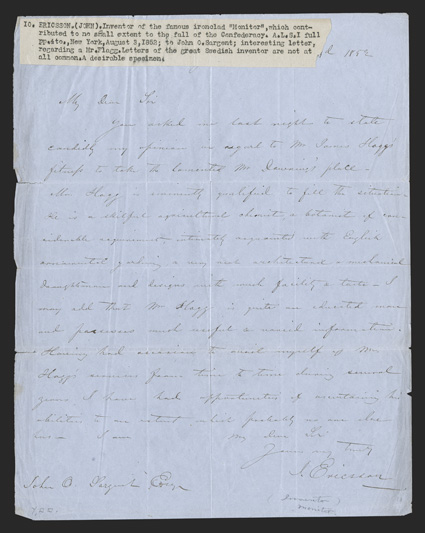 10. ERICSSON.(JOHN).Inventor of the famous ironclad "Monitor",which cont-
ributed to no small extent to the fall of the Confederacy. A.L.S.1 full
pp.4to.,New York,August 3,1852; to John O.Sargent; interesting letter,
regarding a Mr.Flagg.Letters of the great Swedish inventor are not at
all common.A desirable specimen.
1852
My Dear Sir
You asked me last night to state
candidly my opinion in regard to Mr James Flagg's
fitness to take the lamented Mr Downing's place –
Mr Flagg is eminently qualified to fill the situation.
He is a skilful agricultural chemist, a botanist of con-
siderable acquirement intimately acquainted with English
ornamental gardening & may and architectural & mechanical
Draughtsman and designs with much facility & taste – I
may add that Mr Flagg is quite an educated man
and possesses much useful & varied information.
Having had occasion to avail myself of Mr
Flagg's services from time to time during several
years I have had opportunities of ascertaining his
abilities to an extent which probably no one else
has – I am My Dear Sir
Yours very truly
J. Ericsson
John O. Sargent Esq
(Inventor
Monitor)